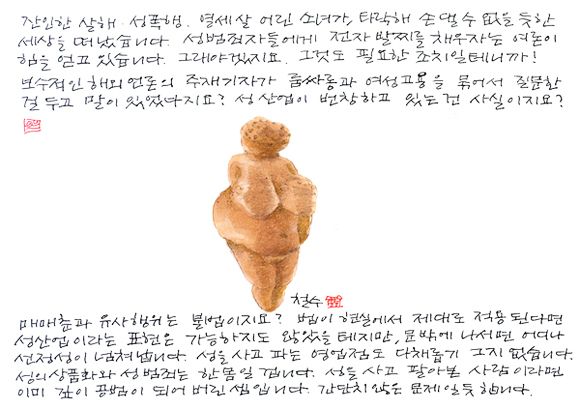 잔인한 살해·성폭행. 열세살 어린 소녀가, 타락해 손 댈 수 없을 듯한
세상을 떠났습니다. 성범죄자들에게 전자 발찌를 채우자는 여론이
힘을 얻고 있습니다. 그래야겠지요. 그것도 필요한 조치일테니까!
보수적인 해외 언론의 주재기자가 룸싸롱과 여성고용을 묶어서 질문한
걸 두고 말이 있었다지요? 성산업이 번창하고 있는건 사실이지요?
철수
매매춘과 유사행위는 불법이지요? 법이 현실에서 제대로 적용된다면
성산업이라는 표현은 가능하지도 않았을 테지만, 문밖에 나서면 어디나
선정성이 넘쳐납니다. 성을 사고 파는 영업점도 다채롭기 그지 없습니다.
성의 상품화와 성범죄는 한몸일 겁니다. 성을 사고 팔아본 사람이라면
이미 깊이 공범이 되어 버린 셈입니다. 간단치 않은 문제일듯 합니다.